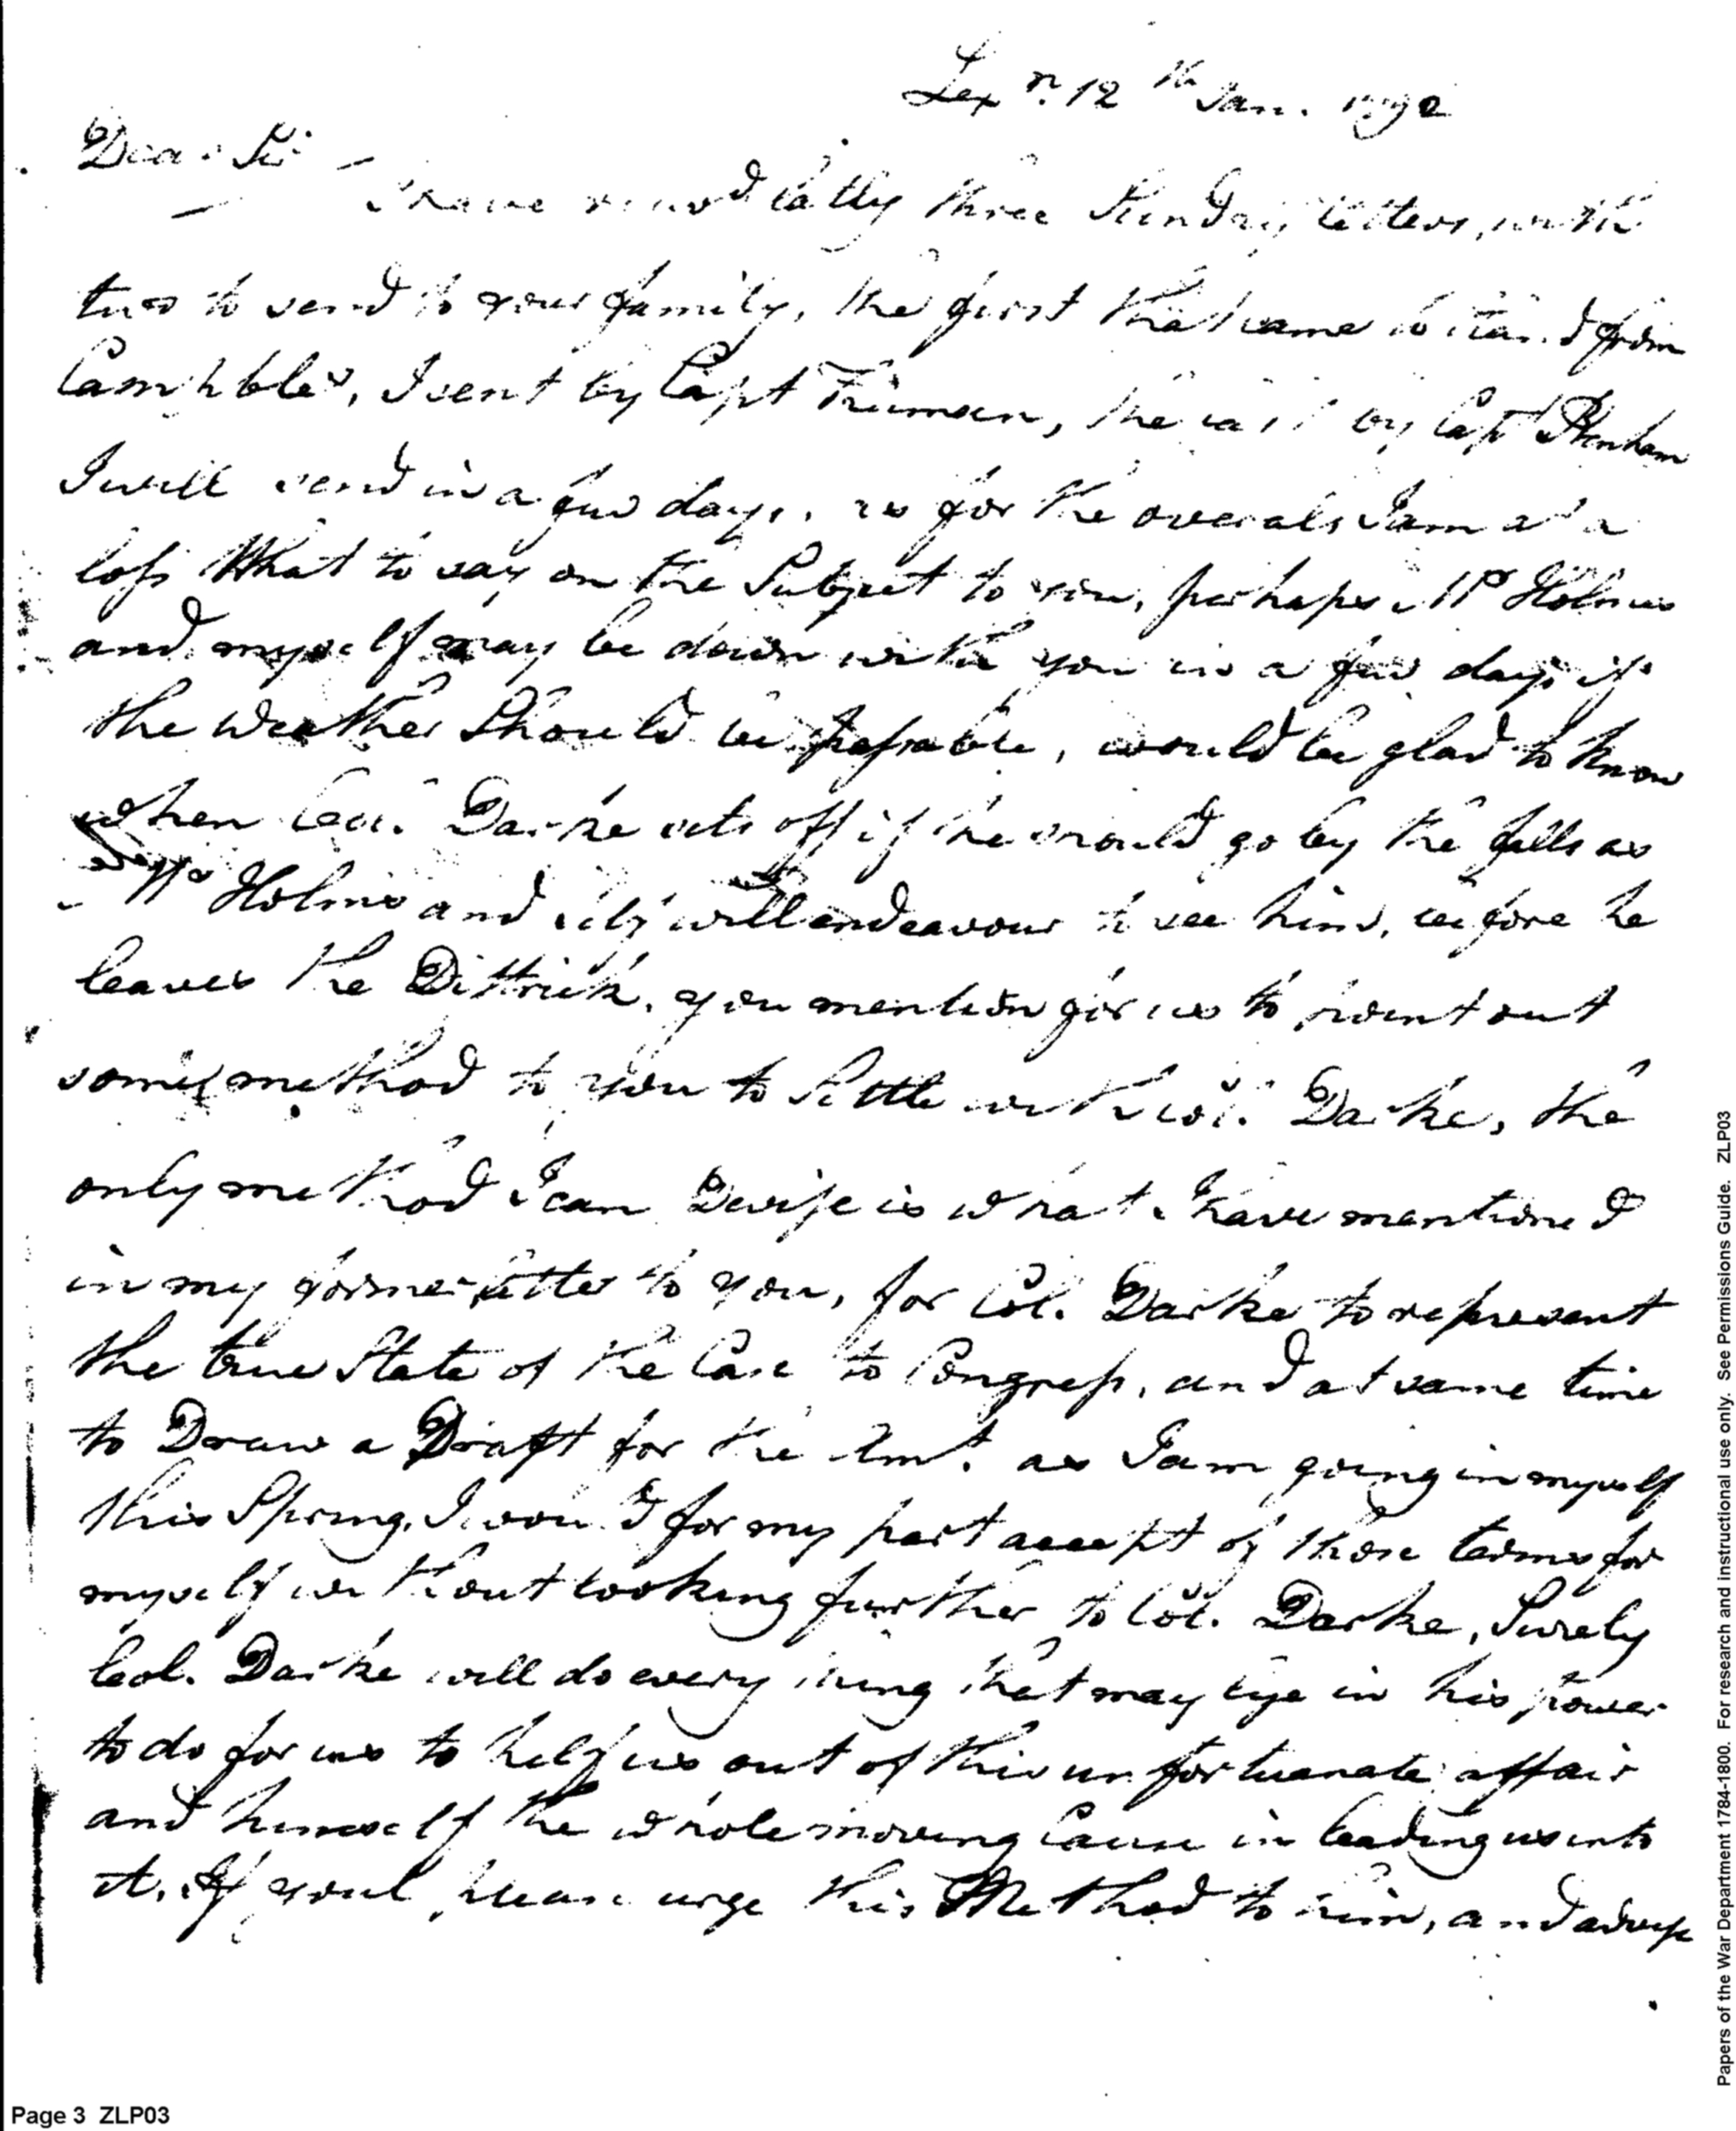 Lexn. 12th Jan. 1792
Dear Sir
I have receivd latly three Sundry letters, with
two to send to your family, the first that came to hand from
Campbles, I sent by Capt Truman, the last by Capt
I will send in a few days, as for the overals I am at a
loss What to say on the Subject to you, perhaps Mr Holmes
and myself may be down with you in a few days if
the weather Should be passable, would be glad to know
when Col. Darke sets off if he should go by the falls as
Mr Holmes and will endeavour to see him, before he
leaves the Dittrick. you mention for us to point out
some method to you to Settle with Col. Darke, the
only method I can Devise is what I have mentioned
in my former letter to you, for Col. Darke to represent
the true State of the Case to Congress, and at same time
to Draw a Draft for the Amt. as I am going in myself
this Spring, I would for my part accept of those terms for
myself without looking further to Col. Darke, Surely
Col. Darke will do every thing that may lye in his power
to do for us to help us out of this unfortuanate affair
and himself the whole moving Cause in leading us into
it. If youl please urge this Method to him, and advise
Page 3 ZLP03
Papers of the War Department 1784-1800. For research and instructional use only. See Permissions Guide. ZLP03